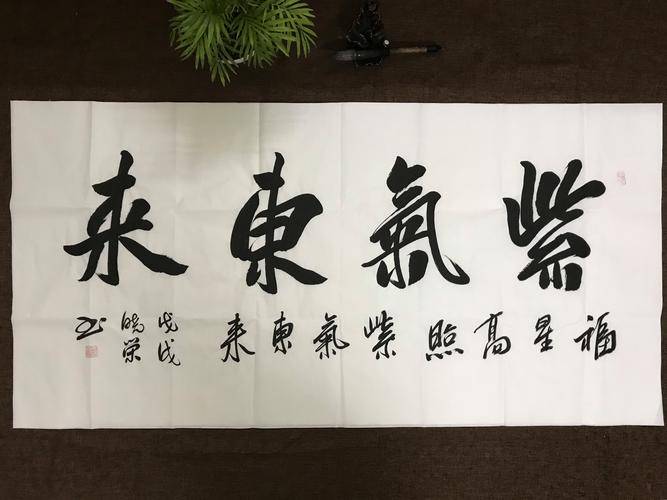 紫氣東来
福星高照紫氣東来
戊戌
曉荣
书